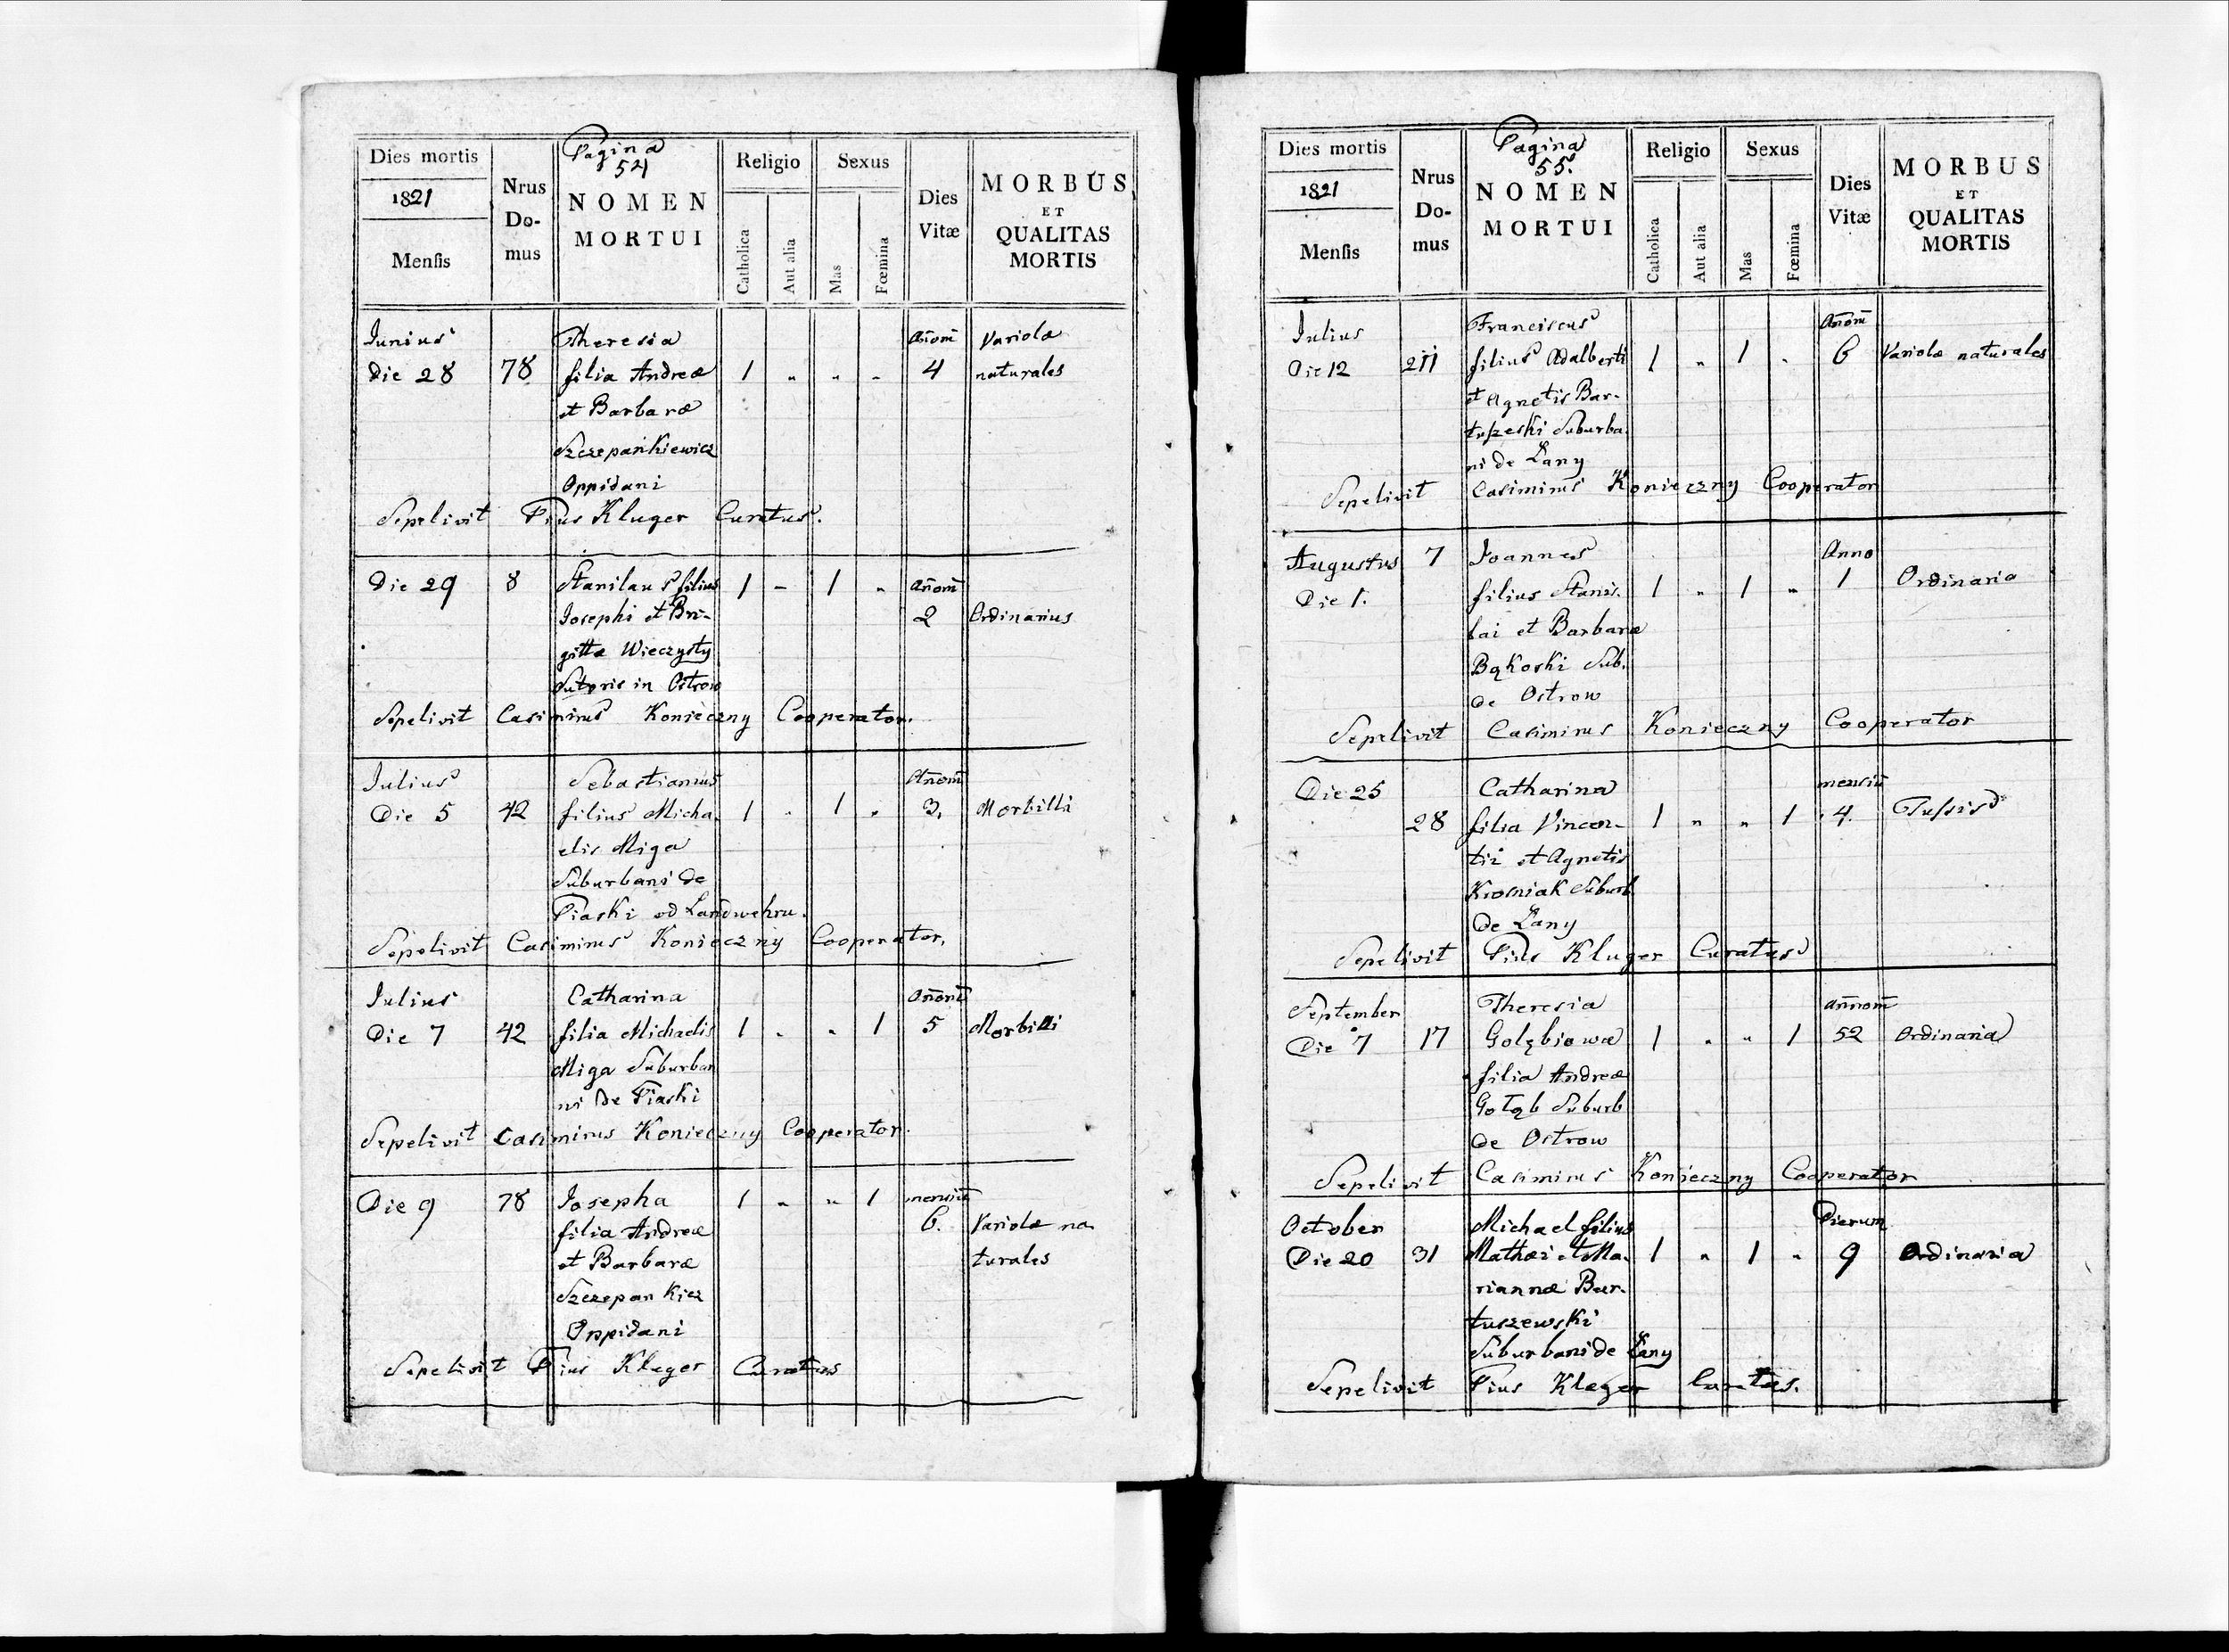 Dies mortis
1821
Mensis
Nrus
Do-
mus
Pagina
54
NOMEN
MORTUI
Religio
Catholica
Aut alia
Sexus
Mas
Fœmina
Dies
Vitæ
MORBUS
ET
QUALITAS
MORTIS
Junius Theresia añom Variolæ
Die 28 78 filia Andreæ 1 " " " 4 naturales
et Barbaræ
Szczepankiewicz
Oppidani
Sepelivit Pius Kluger Curatus.
Die 29 8 Stanilaus filius 1 - 1 " añom
Josephi et Bri- 2 Ordinarius
gittæ Wieczysty
Sutoris in Ostrow
Sepelivit Casimirus Konieczny Cooperator.
Julius Sebastianus Añom
Die 5 42 filius Micha- 1 " 1 " 3. Morbilli
elis Miga
Suburbani de
Piaski od Landwehru.
Sepelivit Casimirus Konieczny Cooperator.
Julius Catharina añom
Die 7 42 filia Michaelis 1 " " 1 5 Morbilli
Miga Suburba
ni de Piaski
Sepelivit Casimirus Konieczny Cooperator.
Die 9 78 Josepha 1 " " 1 mensiu
filia Andreæ 6. Variolæ na
et Barbaræ turales
Szczepankiez
Oppidani
Sepelivit Pius Kluger Curatus
Dies mortis
1821
Mensis
Nrus
Do-
mus
Pagina
55.
NOMEN
MORTUI
Religio
Catholica
Aut alia
Sexus
Mas
Fœmina
Dies
Vitæ
MORBUS
ET
QUALITAS
MORTIS
Julius Franciscus añom
Die 12 211 filius Adalberti 1 " 1 " 6 Variolæ naturales
et Agnetis Bar-
tuszeski Suburba
ni de Łany
Sepelivit Casimirus Konieczny Cooperator
Augustus 7 Joannes Anno
Die 1. filius Stanis- 1 " 1 " 1 Ordinaria
lai et Barbaræ
Bąkoski Sub.
de Ostrow
Sepelivit Casimirus Konieczny Cooperator
Die 25 Catharina mensiū
28 filia Vincen- 1 " " 1 4. Tussis
tii et Agnetis
Krosniak Suburb.
de Łany
Sepelivit Pius Kluger Curatus
September Theresia añnom
Die 7 17 Golębiowa 1 " " 1 52 Ordinaria
filia Andreæ
Gołąb Suburb
de Ostrow
Sepelivit Casimirus Konieczny Cooperator
October Michael filius Dierum
Die 20 31 Mathæi et Ma- 1 " 1 " 9 Ordinaria
riannæ Bar-
tuszewski
Suburbani de Łany
Sepelivit Pius Kluger Curatus.